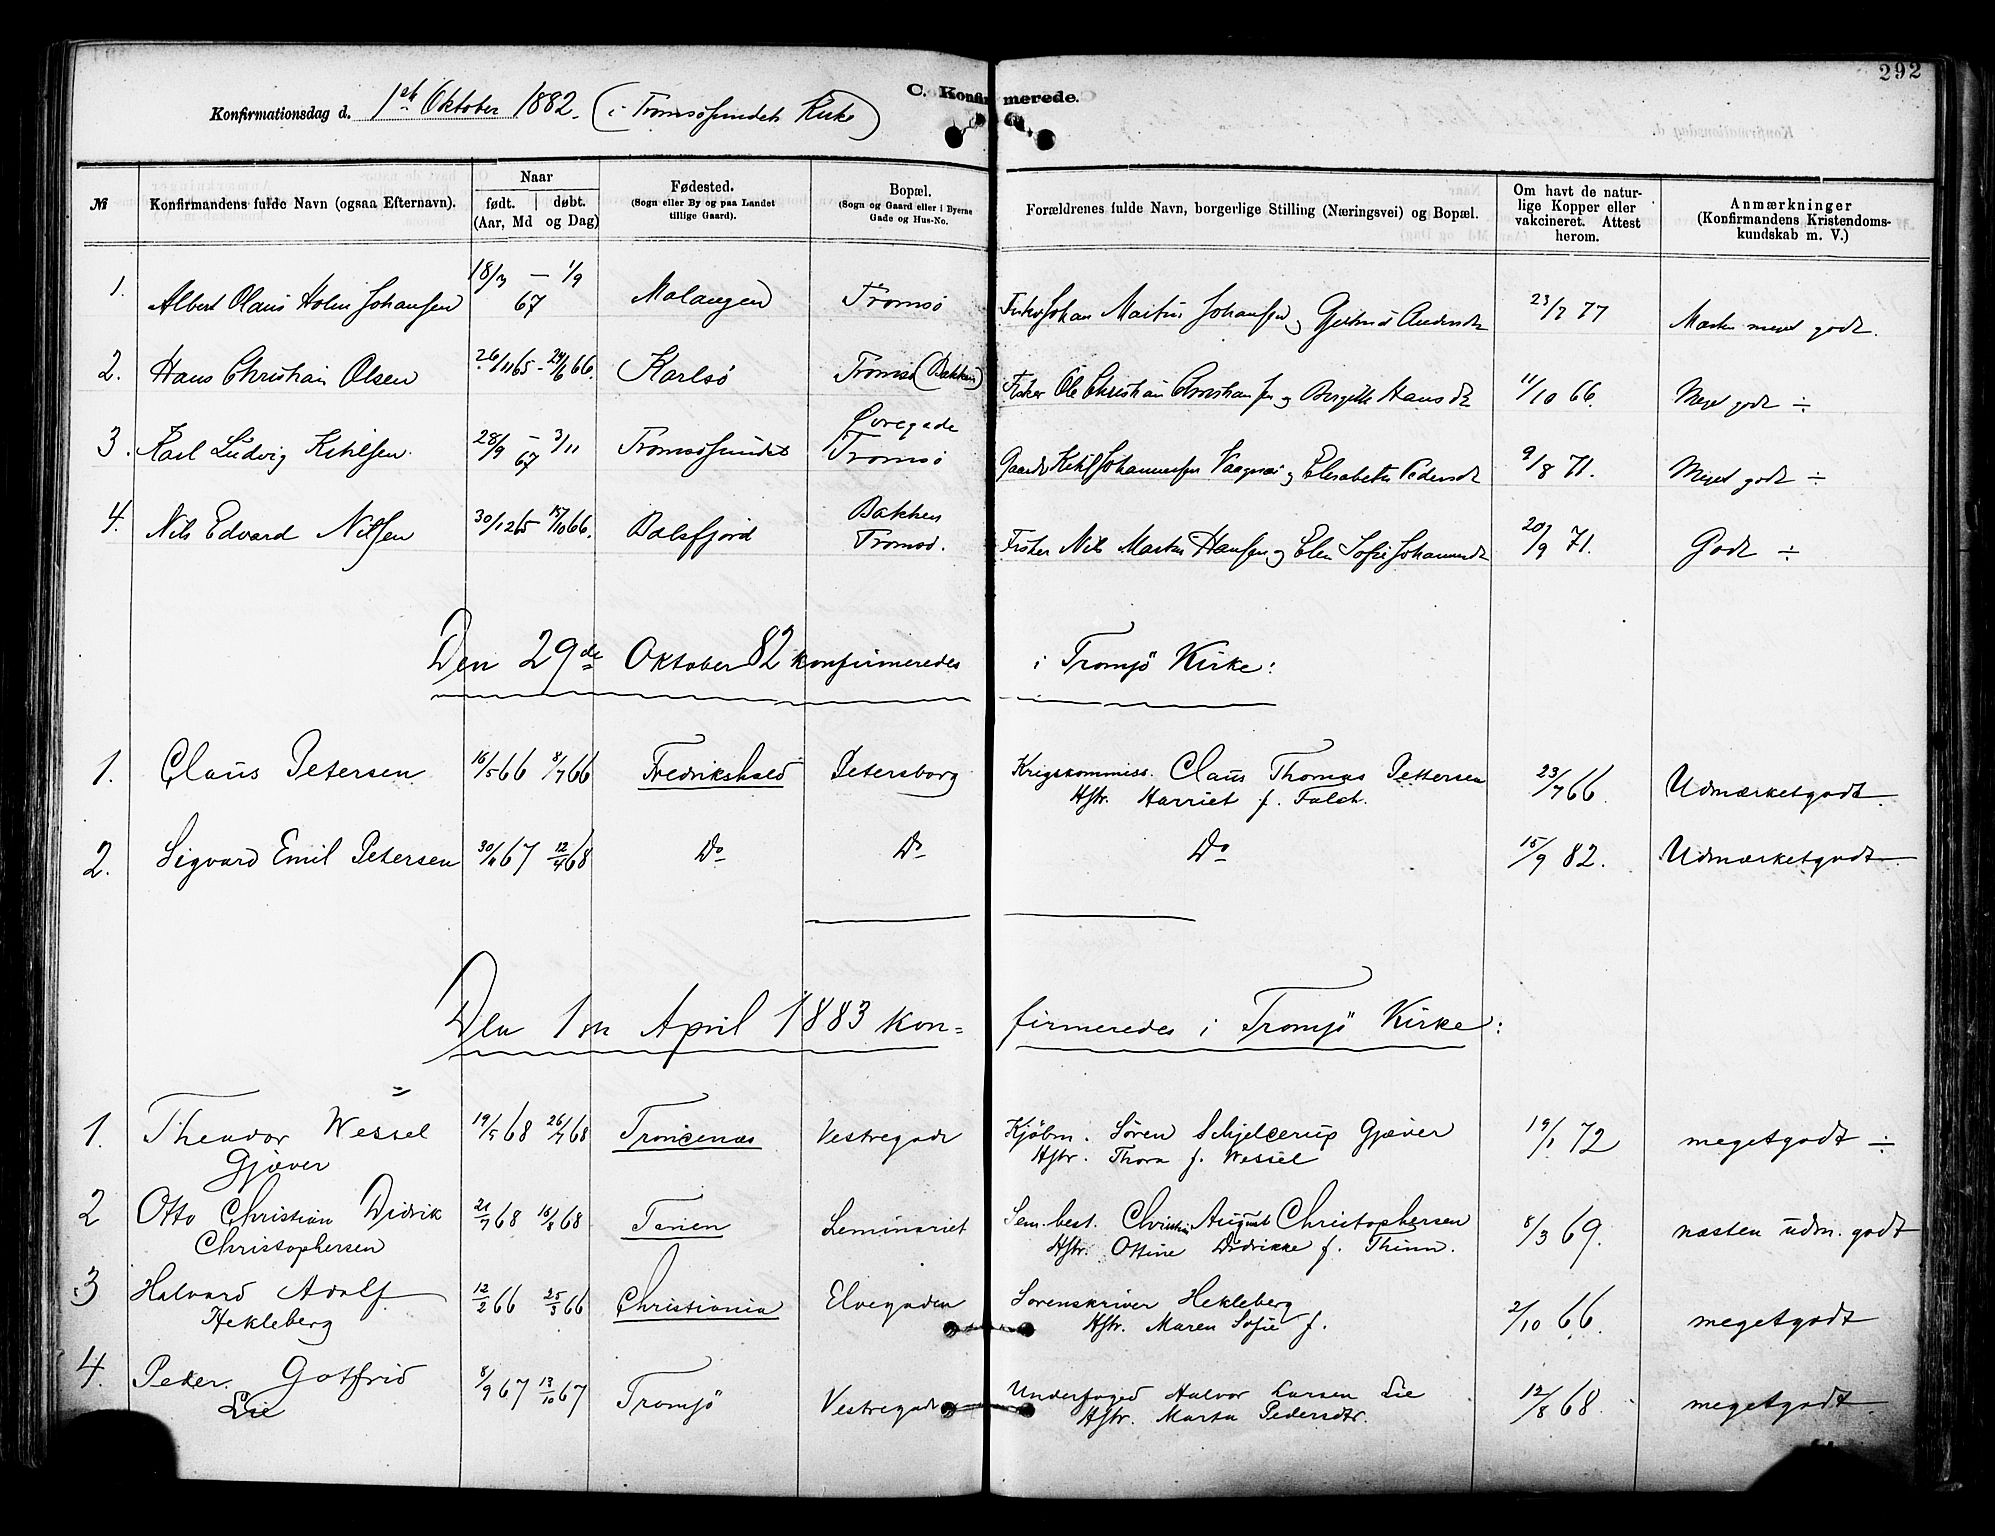 292
C. Konfirmerede.
Konfirmationsdag d. 1ste Oktober 1882. (i Tromsøsundets Kirke)
№
Konfirmandens fulde Navn (ogsaa Efternavn).
Naar
født. | døbt.
(Aar, Md og Dag)
Fødested.
(Sogn eller By og paa Landet
tillige Gaard).
Bopæl.
(Sogn og Gaard eller i Byerne
Gade og Hus-No.
Forældrenes fulde Navn, borgerlige Stilling (Næringsvei) og Bopæl.
Om havt de natur-
lige Kopper eller
vakcineret. Attest
herom.
Anmærkninger
(Konfirmandens Kristendoms-
kundskab m. V.)
1. Albert Olaus Holm Johansen 18/3 – 1/9 67 Malangen Tromsø Fisker Johan Martin Johansen og Gjertrud Andersdt 23/7 77 Næsten meget godt.
2. Hans Christian Olsen 26/11 65 – 24/6 66. Karlsø Tromsø (Bakken) Fisker Ole Christian Christiansen og Bergitte Hansdt 11/10 66. Meget godt ÷
3. Karl Ludvig Ketilsen 28/9 – 3/11 67 Tromsøsundet Øvregade Tromsø Gaardb. Ketil Johannesen Vaagnæs og Elisabeth Pedersdt 9/8 71. Meget godt ÷
4. Nils Edvard Nilsen 30/12 65 – 15/10 66. Balsfjord Bakken Tromsø. Fisker Nils Martin Hansen og Elen Sofie Johannesdt 20/9 71. Godt ÷
Den 29de Oktober 82 konfirmeredes i Tromsö Kirke:
1. Claus Petersen 16/5 66 8/7 66 Fredrikshald Petersborg Krigskommiss. Claus Thomas Pettersen
Hstr. Harriet f. Falch. 23/7 66. Udmærketgodt.
2. Sigvard Emil Petersen 30/11 67 12/4 68 Do Do Do 15/9 82. Udmærketgodt
Den 1ste April 1883 kon= firmeredes i Tromsö Kirke:
1. Theodor Wessel
Gjæver 19/5 68 26/7 68 Trondenæs Vestregade Kjöbm. Sören Schjelderup Gjæver
Hstr. Thora f. Wessel 19/1 72 megetgodt ÷
2 Otto Christian Didrik
Christophersen 21/7 68 16/8 68 Tanen Seminariet Sem. best. Christian August Christophersen
Hstr. Ottine Didrikke f. Thinn. 8/3 69. næsten udm. godt
3 Halvard Adolf
Hekleberg 12/2 66 25/3 66 Christiania Elvegaden Sorenskriver Hekleberg
Hstr. Maren Sofie f. 2/10 66. megetgodt
4. Peder Gotfrid
Lie 8/9 67 13/10 67 Tromsö Vestregade Underfoged Halvor Larsen Lie
Hstr. Marta Pedersdtr. 12/8 68. megetgodt